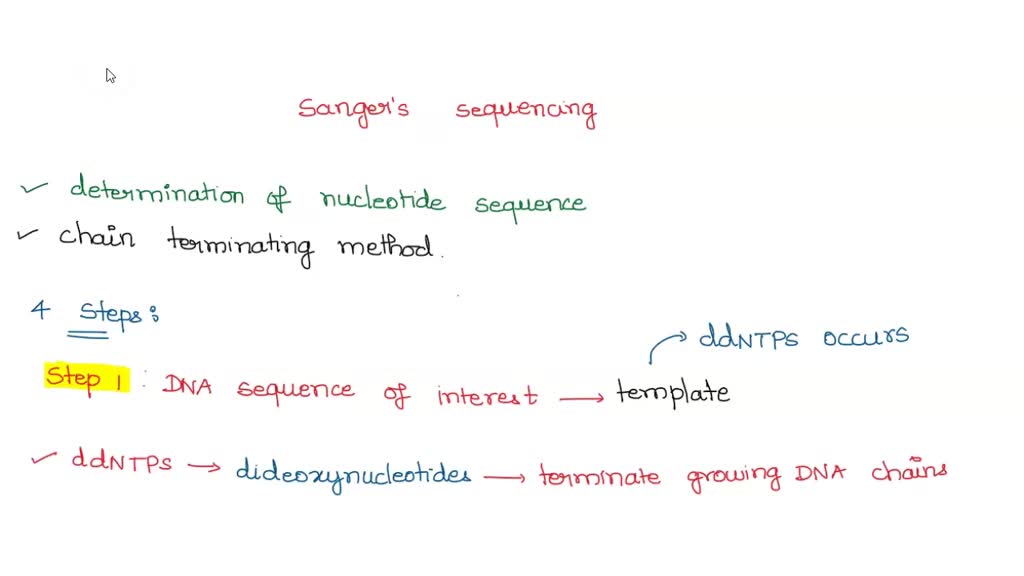 Sanger's sequencing
✓ determination of nucleotide sequence
✓ chain terminating method.
4 Steps:
ddNTPs occurs
Step 1 : DNA sequence of interest → template
✓ ddNTPs → dideoxynucleotides → terminate growing DNA chains